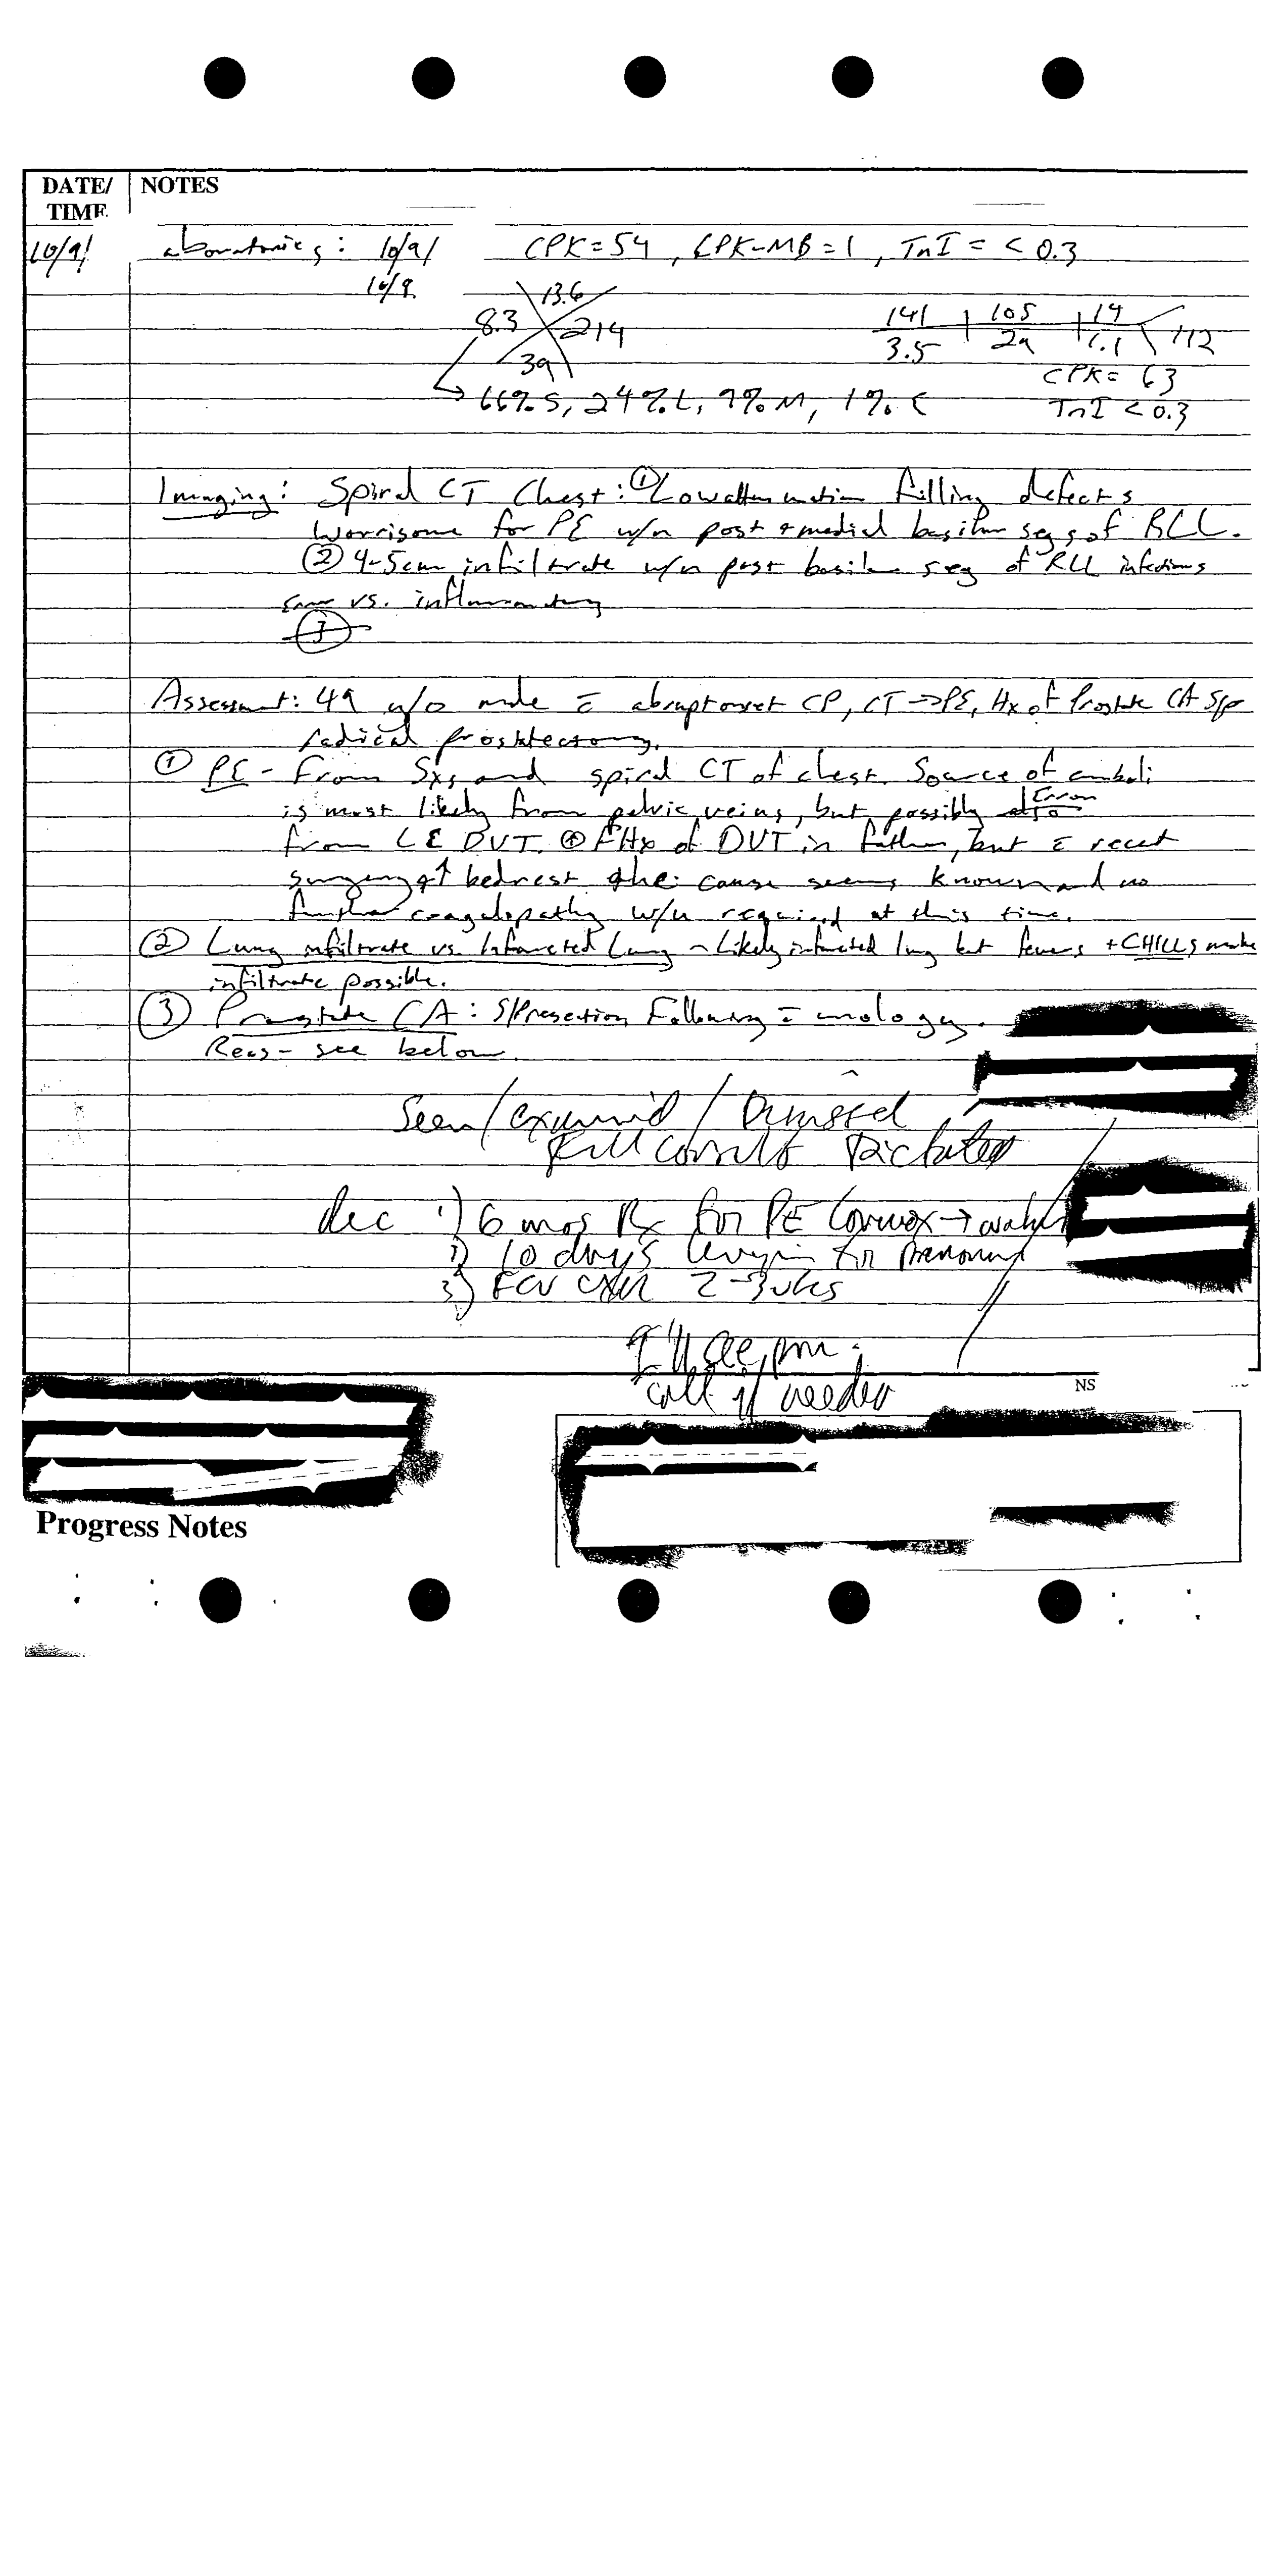 DATE/ NOTES
TIME
10/9/ aboratories: 10/9/ CPK=54, CPK-MB=1, TnI = < 0.3
10/9 13.6
8.3 214 141 105 14
39 3.5 29 1.1 112
CPK= 63
66% S, 24% L, 9% M, 1% E TnI < 0.3
Imaging: Spiral CT Chest: ① Low attenuation filling defects
worrisome for PE w/n post + medial basilar segs of RLL.
② 4-5cm infiltrate w/n post basilar seg of RLL infectious
vs. inflammatory
③
Assessment: 49 y/o male c̄ abrupt onset CP, CT → PE, Hx of Prostate CA s/p
radical prostatectomy.
① PE - From Sxs and spiral CT of chest. Source of emboli
is most likely from pelvic veins, but possibly also Error
from LE DVT. ⊕ FHx of DVT in father, but c̄ recent
surgery + ↑ bedrest the cause seems known and no
further coagulopathy w/u required at this time.
② Lung infiltrate vs. Infarcted Lung - Likely infarcted lung but fevers + CHILLS make
infiltrate possible.
③ Prostate CA: S/P resection Following c̄ urology.
Recs - see below.
Seen/examined/Discussed
Full consult Dictated
Rec 1) 6 mos Rx for PE Lovenox →
2) 10 days levaquin for pneumonia
3) F/U CXR 2-3 wks
I'll see prn.
call if needed
NS
Progress Notes